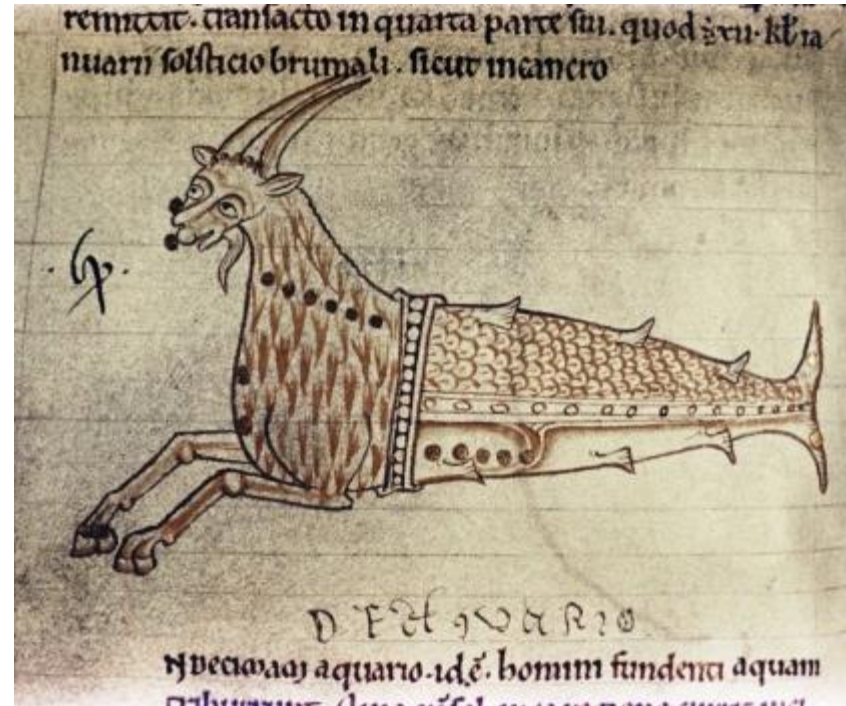 remittit. transacto in quarta parte sui. quod
nuarii solsticio brumali. sicut in cancro
DE AQVARIO
NDecimam aquario. idē. homini fundenti aquam